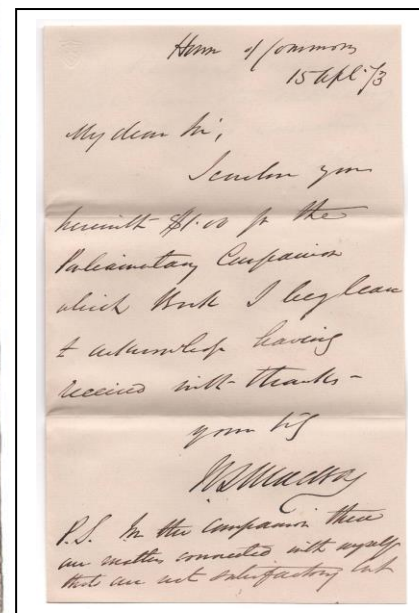 House of Commons
15 Apl. 73
My dear Sir,
I enclose you
herewith $1.00 for the
Parliamentary Companion
which Book I beg leave
to acknowledge having
received with thanks -
yours
P.S. In the Companion there
are matters connected with myself
that are not satisfactory but